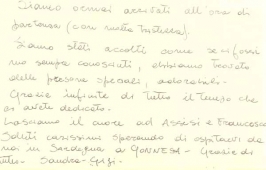 Siamo ormai arrivati all'ora di
partenza (con molta tristezza).
Siamo stati accolti come se ci fossi
mo sempre conosciuti, abbiamo trovato
delle persone speciali, adorabili.
Grazie infinite di tutto il tempo che
ci avete dedicato.
Lasciamo il cuore ad Assisi e Francesco
Saluti carissimi sperando di ospitarvi da
noi in Sardegna a GONNESA - Grazie di
tutto. Sandra -